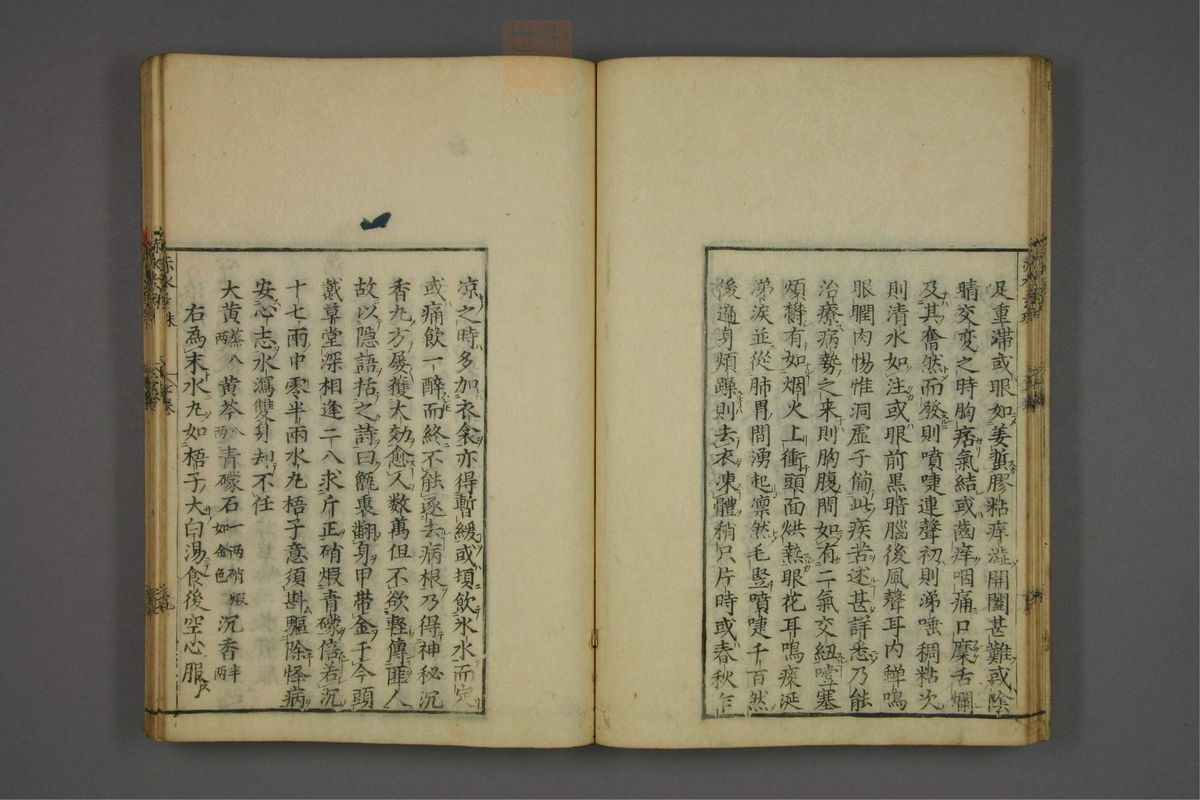 足重滯或眼如姜蜇膠粘痒澁開闔甚難或陰
晴交変之時胸痞氣結或齒痒咽痛口糜舌爛
及其奮然而發則噴嚏連聲初則涕唾稠粘次
則清水如注或眼前黒暗腦後風聲耳内蟬鳴
眼瞤肉惕惟洞虛子備此疾苦述甚詳悉乃能
治療病勢之来則胸腹間如有二氣交紐噎塞
煩欝有如烟火上衝頭面烘熱眼花耳鳴痰涎
涕淚並從肺胃間湧起凛然毛竪噴嚏千百然
後遍身煩躁則去衣凍體稍只片時或春秋乍
凉之時多加衣衾亦得暫緩或頓飲氷水而定
或痛飲一醉而終不能逐去病根乃得神秘沉
香丸方屡獲大効愈人数萬但不欲軽傳匪人
故以隱語括之詩曰甑裹翻身甲帯金于今頭
戴草堂深相逢二八求斤正硝煅青礞倍若沉
十七兩中零半兩水丸梧子意須斟驅除怪病
安心志水瀉雙身却不任
大黄蒸八兩黄芩八兩青礞石一兩硝煅如金色沉香半兩
右為末水丸如梧子大白湯食後空心服